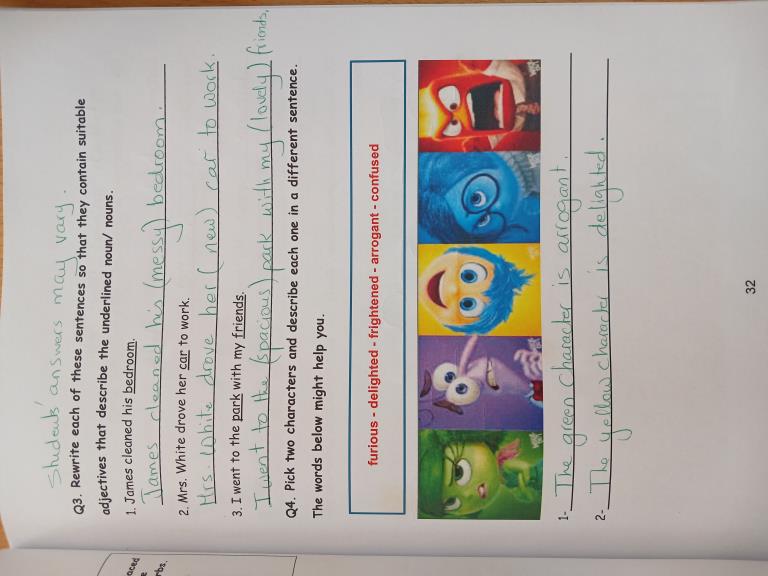 Students' answers may vary.
Q3. Rewrite each of these sentences so that they contain suitable
adjectives that describe the underlined noun/ nouns.
1. James cleaned his bedroom.
James cleaned his (messy) bedroom.
2. Mrs. White drove her car to work.
Mrs. White drove her (new) car to work.
3. I went to the park with my friends.
I went to the (spacious) park with my (lovely) friends.
Q4. Pick two characters and describe each one in a different sentence.
The words below might help you.
furious - delighted - frightened - arrogant - confused
1- The green character is arrogant.
2- The yellow character is delighted.
32
aced
e
rbs.